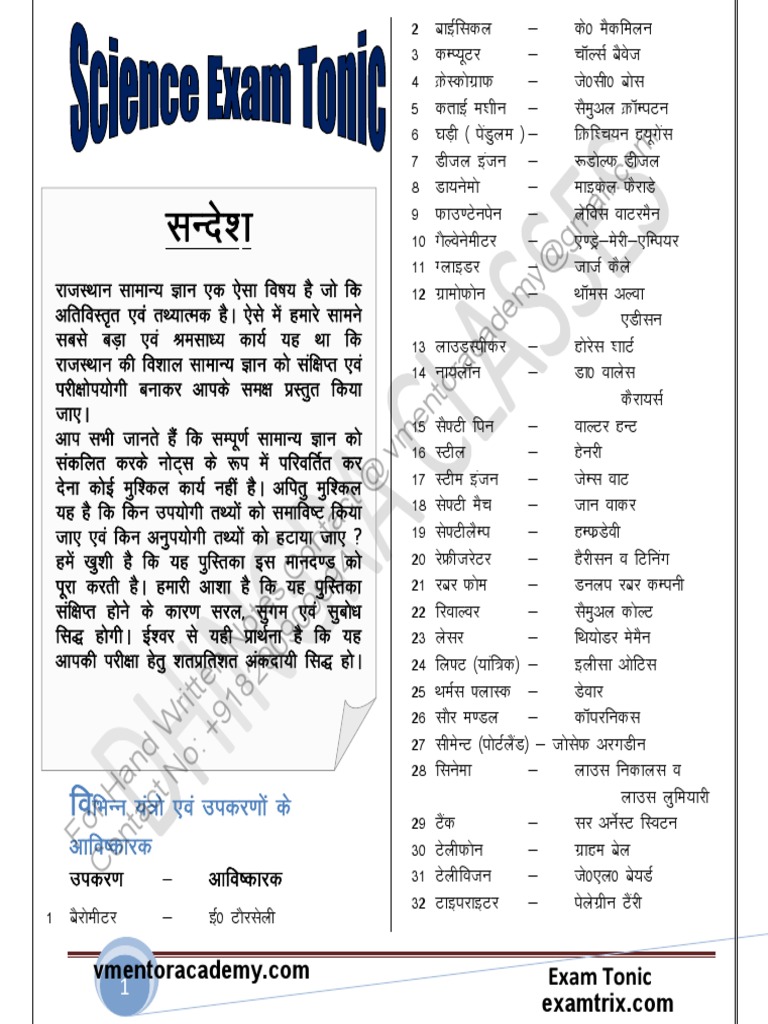 Science Exam Tonic
सन्देश
राजस्थान सामान्य ज्ञान एक ऐसा विषय है जो कि
अतिविस्तृत एवं तथ्यात्मक है। ऐसे में हमारे सामने
सबसे बड़ा एवं श्रमसाध्य कार्य यह था कि
राजस्थान की विशाल सामान्य ज्ञान को संक्षिप्त एवं
परीक्षोपयोगी बनाकर आपके समक्ष प्रस्तुत किया
जाए।
आप सभी जानते हैं कि सम्पूर्ण सामान्य ज्ञान को
संकलित करके नोट्स के रूप में परिवर्तित कर
देना कोई मुश्किल कार्य नहीं है। अपितु मुश्किल
यह है कि किन उपयोगी तथ्यों को समाविष्ट किया
जाए एवं किन अनुपयोगी तथ्यों को हटाया जाए ?
हमें खुशी है कि यह पुस्तिका इस मानदण्ड को
पूरा करती है। हमारी आशा है कि यह पुस्तिका
संक्षिप्त होने के कारण सरल, सुगम एवं सुबोध
सिद्ध होगी। ईश्वर से यही प्रार्थना है कि यह
आपकी परीक्षा हेतु शतप्रतिशत अंकदायी सिद्ध हो।
विभिन्न यंत्रो एवं उपकरणों के
आविष्कारक
उपकरण – आविष्कारक
1 बैरोमीटर – ई0 टौरसेली
2 बाईसिकल – के0 मैकमिलन
3 कम्प्यूटर – चॉर्ल्स बैवेज
4 क्रेस्कोग्राफ – जे0सी0 बोस
5 कताई मशीन – सैमुअल क्रॉम्पटन
6 घड़ी ( पेंडुलम ) – क्रिश्चियन ह्यूगेंस
7 डीजल इंजन – रूडोल्फ डीजल
8 डायनेमो – माइकेल फैराडे
9 फाउण्टेनपेन – लेविस वाटरमैन
10 गैल्वेनेमीटर – एण्ड्रे–मेरी–एम्पियर
11 ग्लाइडर – जार्ज कैले
12 ग्रामोफोन – थॉमस अल्वा
एडीसन
13 लाउडस्पीकर – होरेस शार्ट
14 नायलॉन – डा0 वालेस
कैरायर्स
15 सैपटी पिन – वाल्टर हन्ट
16 स्टील – हेनरी
17 स्टीम इंजन – जेम्स वाट
18 सेपटी मैच – जान वाकर
19 सेपटीलैम्प – हम्फ्रडेवी
20 रेफ्रीजरेटर – हैरीसन व टिनिंग
21 रबर फोम – डनलप रबर कम्पनी
22 रिवाल्वर – सैमुअल कोल्ट
23 लेसर – थियोडर मेमैन
24 लिपट (यांत्रिक) – इलीसा ओटिस
25 थर्मस पलास्क – डेवार
26 सौर मण्डल – कॉपरनिकस
27 सीमेन्ट (पोर्टलैंड) – जोसेफ अरगडीन
28 सिनेमा – लाउस निकालस व
लाउस लुमियारी
29 टैंक – सर अर्नेस्ट स्विटन
30 टेलीफोन – ग्राहम बेल
31 टेलीविजन – जे0एल0 बेयर्ड
32 टाइपराइटर – पेलेग्रीन टैंरी
DHINGRA CLASSES
vmentoracademy.com
1
Exam Tonic
examtrix.com